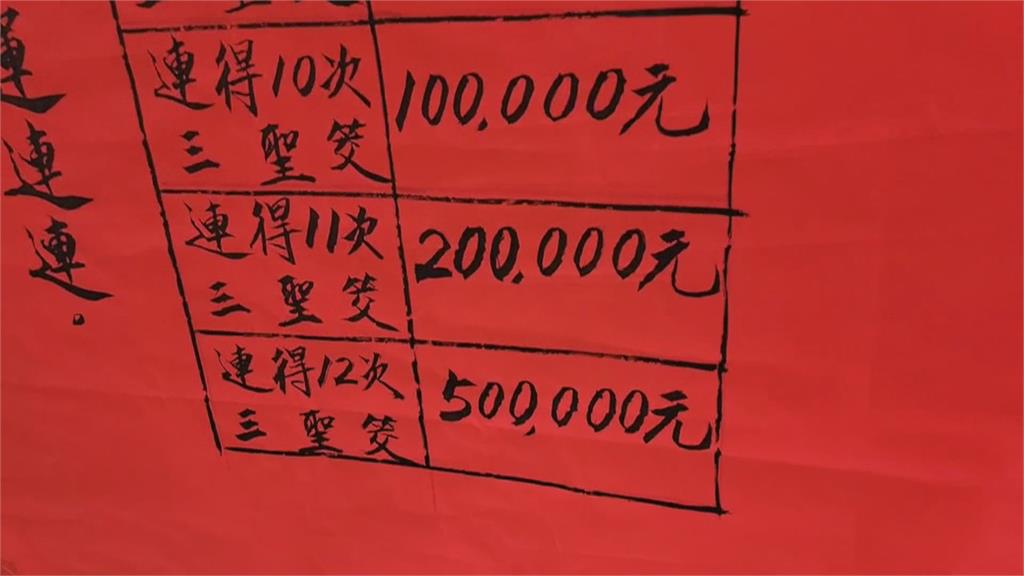 連得10次
三聖筊
100,000元
連得11次
三聖筊
200,000元
連得12次
三聖筊
500,000元
連連。